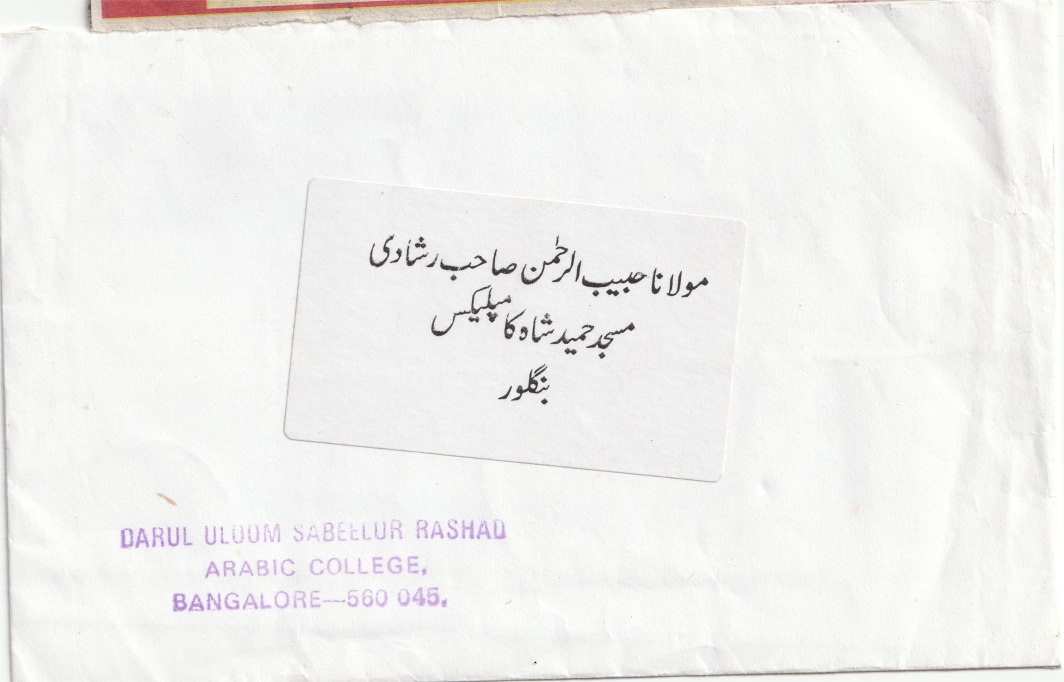 مولانا حبیب الرحمٰن صاحب رشادی
مسجد حمید شاہ کامپلیکس
بنگلور
DARUL ULOOM SABEELUR RASHAD
ARABIC COLLEGE,
BANGALORE—560 045.